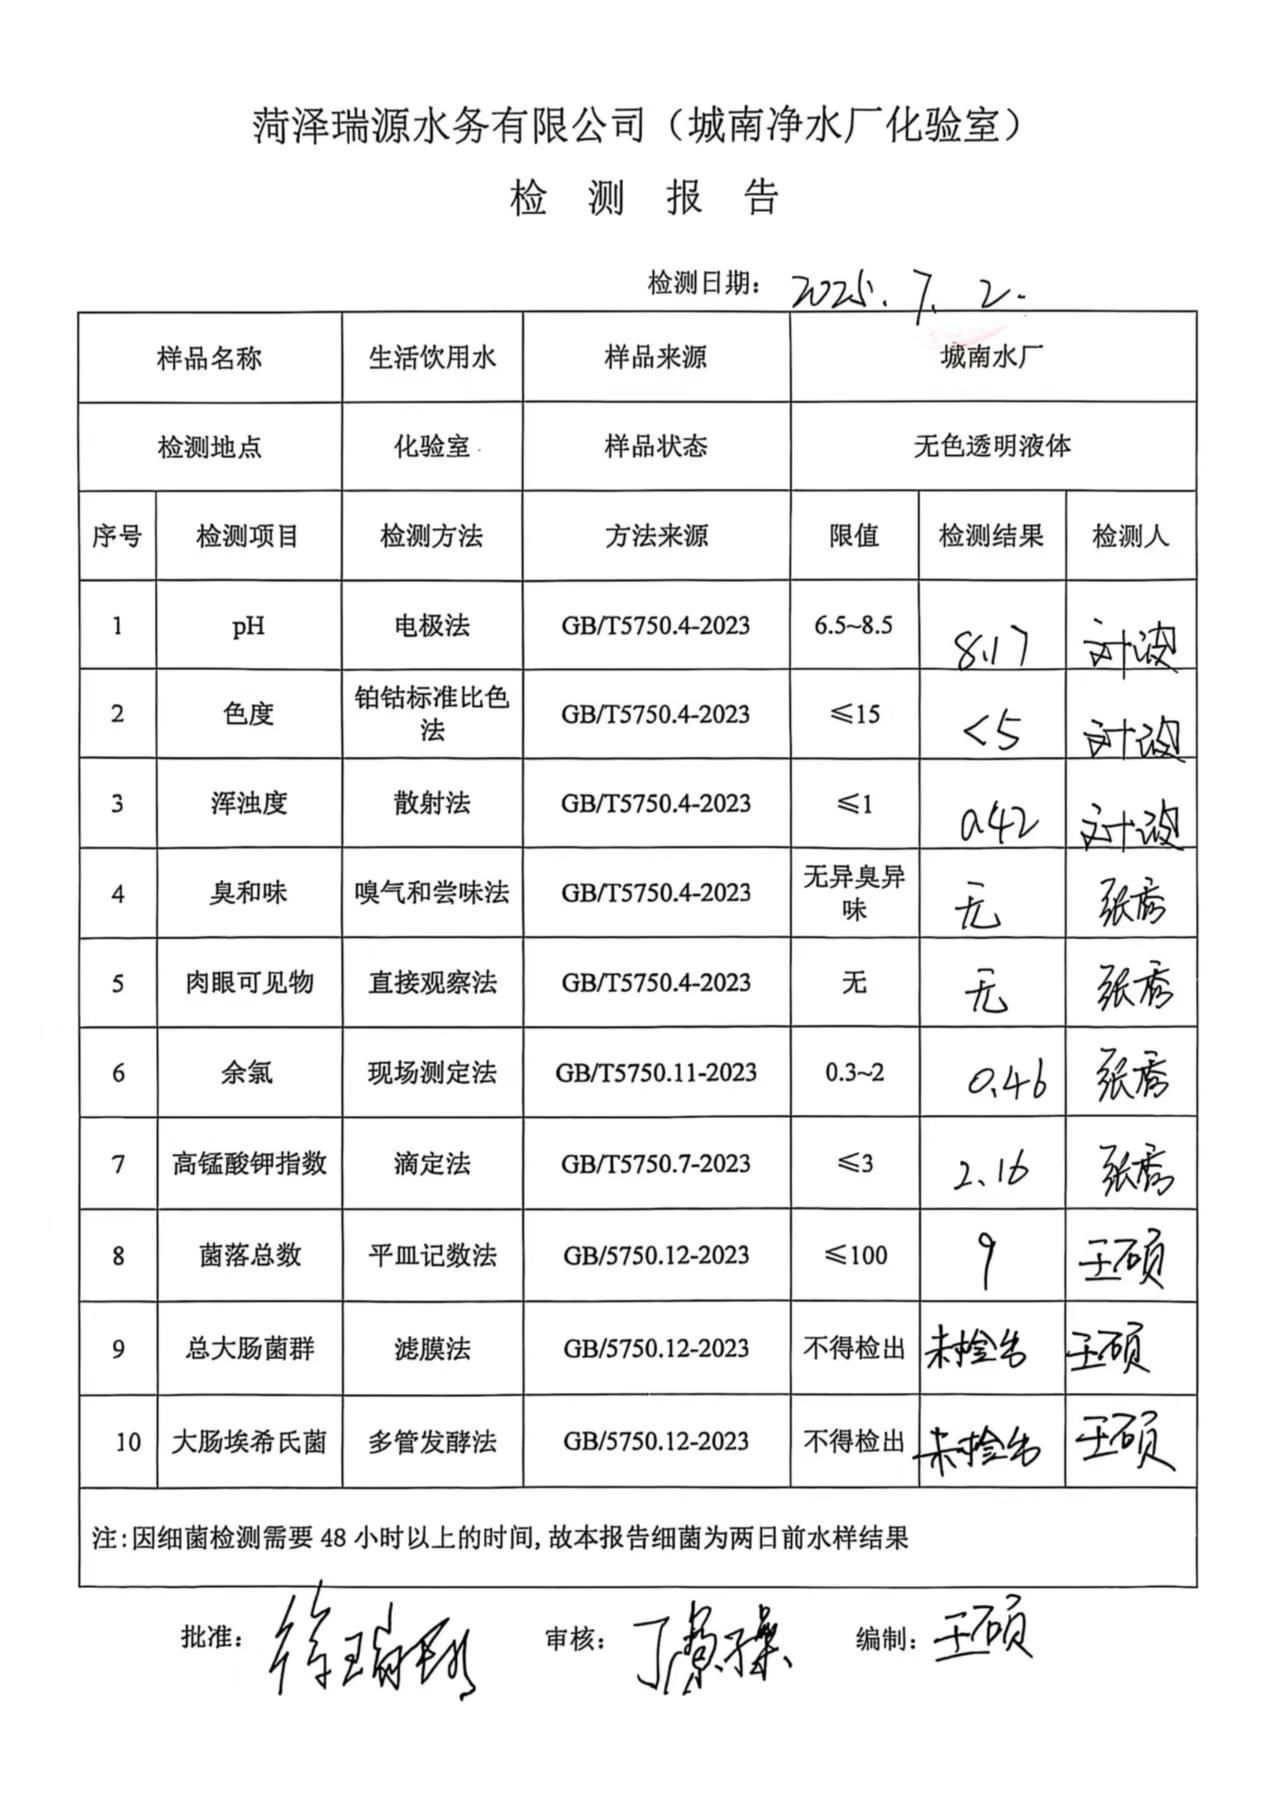 菏泽瑞源水务有限公司（城南净水厂化验室）
检 测 报 告
检测日期： 2025.7.2.
样品名称 生活饮用水 样品来源 城南水厂
检测地点 化验室 样品状态 无色透明液体
序号 检测项目 检测方法 方法来源 限值 检测结果 检测人
1 pH 电极法 GB/T5750.4-2023 6.5~8.5 8.17 刘波
2 色度 铂钴标准比色法 GB/T5750.4-2023 ≤15 <5 刘波
3 浑浊度 散射法 GB/T5750.4-2023 ≤1 0.42 刘波
4 臭和味 嗅气和尝味法 GB/T5750.4-2023 无异臭异味 无 张秀
5 肉眼可见物 直接观察法 GB/T5750.4-2023 无 无 张秀
6 余氯 现场测定法 GB/T5750.11-2023 0.3~2 0.46 张秀
7 高锰酸钾指数 滴定法 GB/T5750.7-2023 ≤3 2.16 张秀
8 菌落总数 平皿记数法 GB/5750.12-2023 ≤100 9 王硕
9 总大肠菌群 滤膜法 GB/5750.12-2023 不得检出 未检出 王硕
10 大肠埃希氏菌 多管发酵法 GB/5750.12-2023 不得检出 未检出 王硕
注:因细菌检测需要 48 小时以上的时间,故本报告细菌为两日前水样结果
批准: 审核: 编制: 王硕